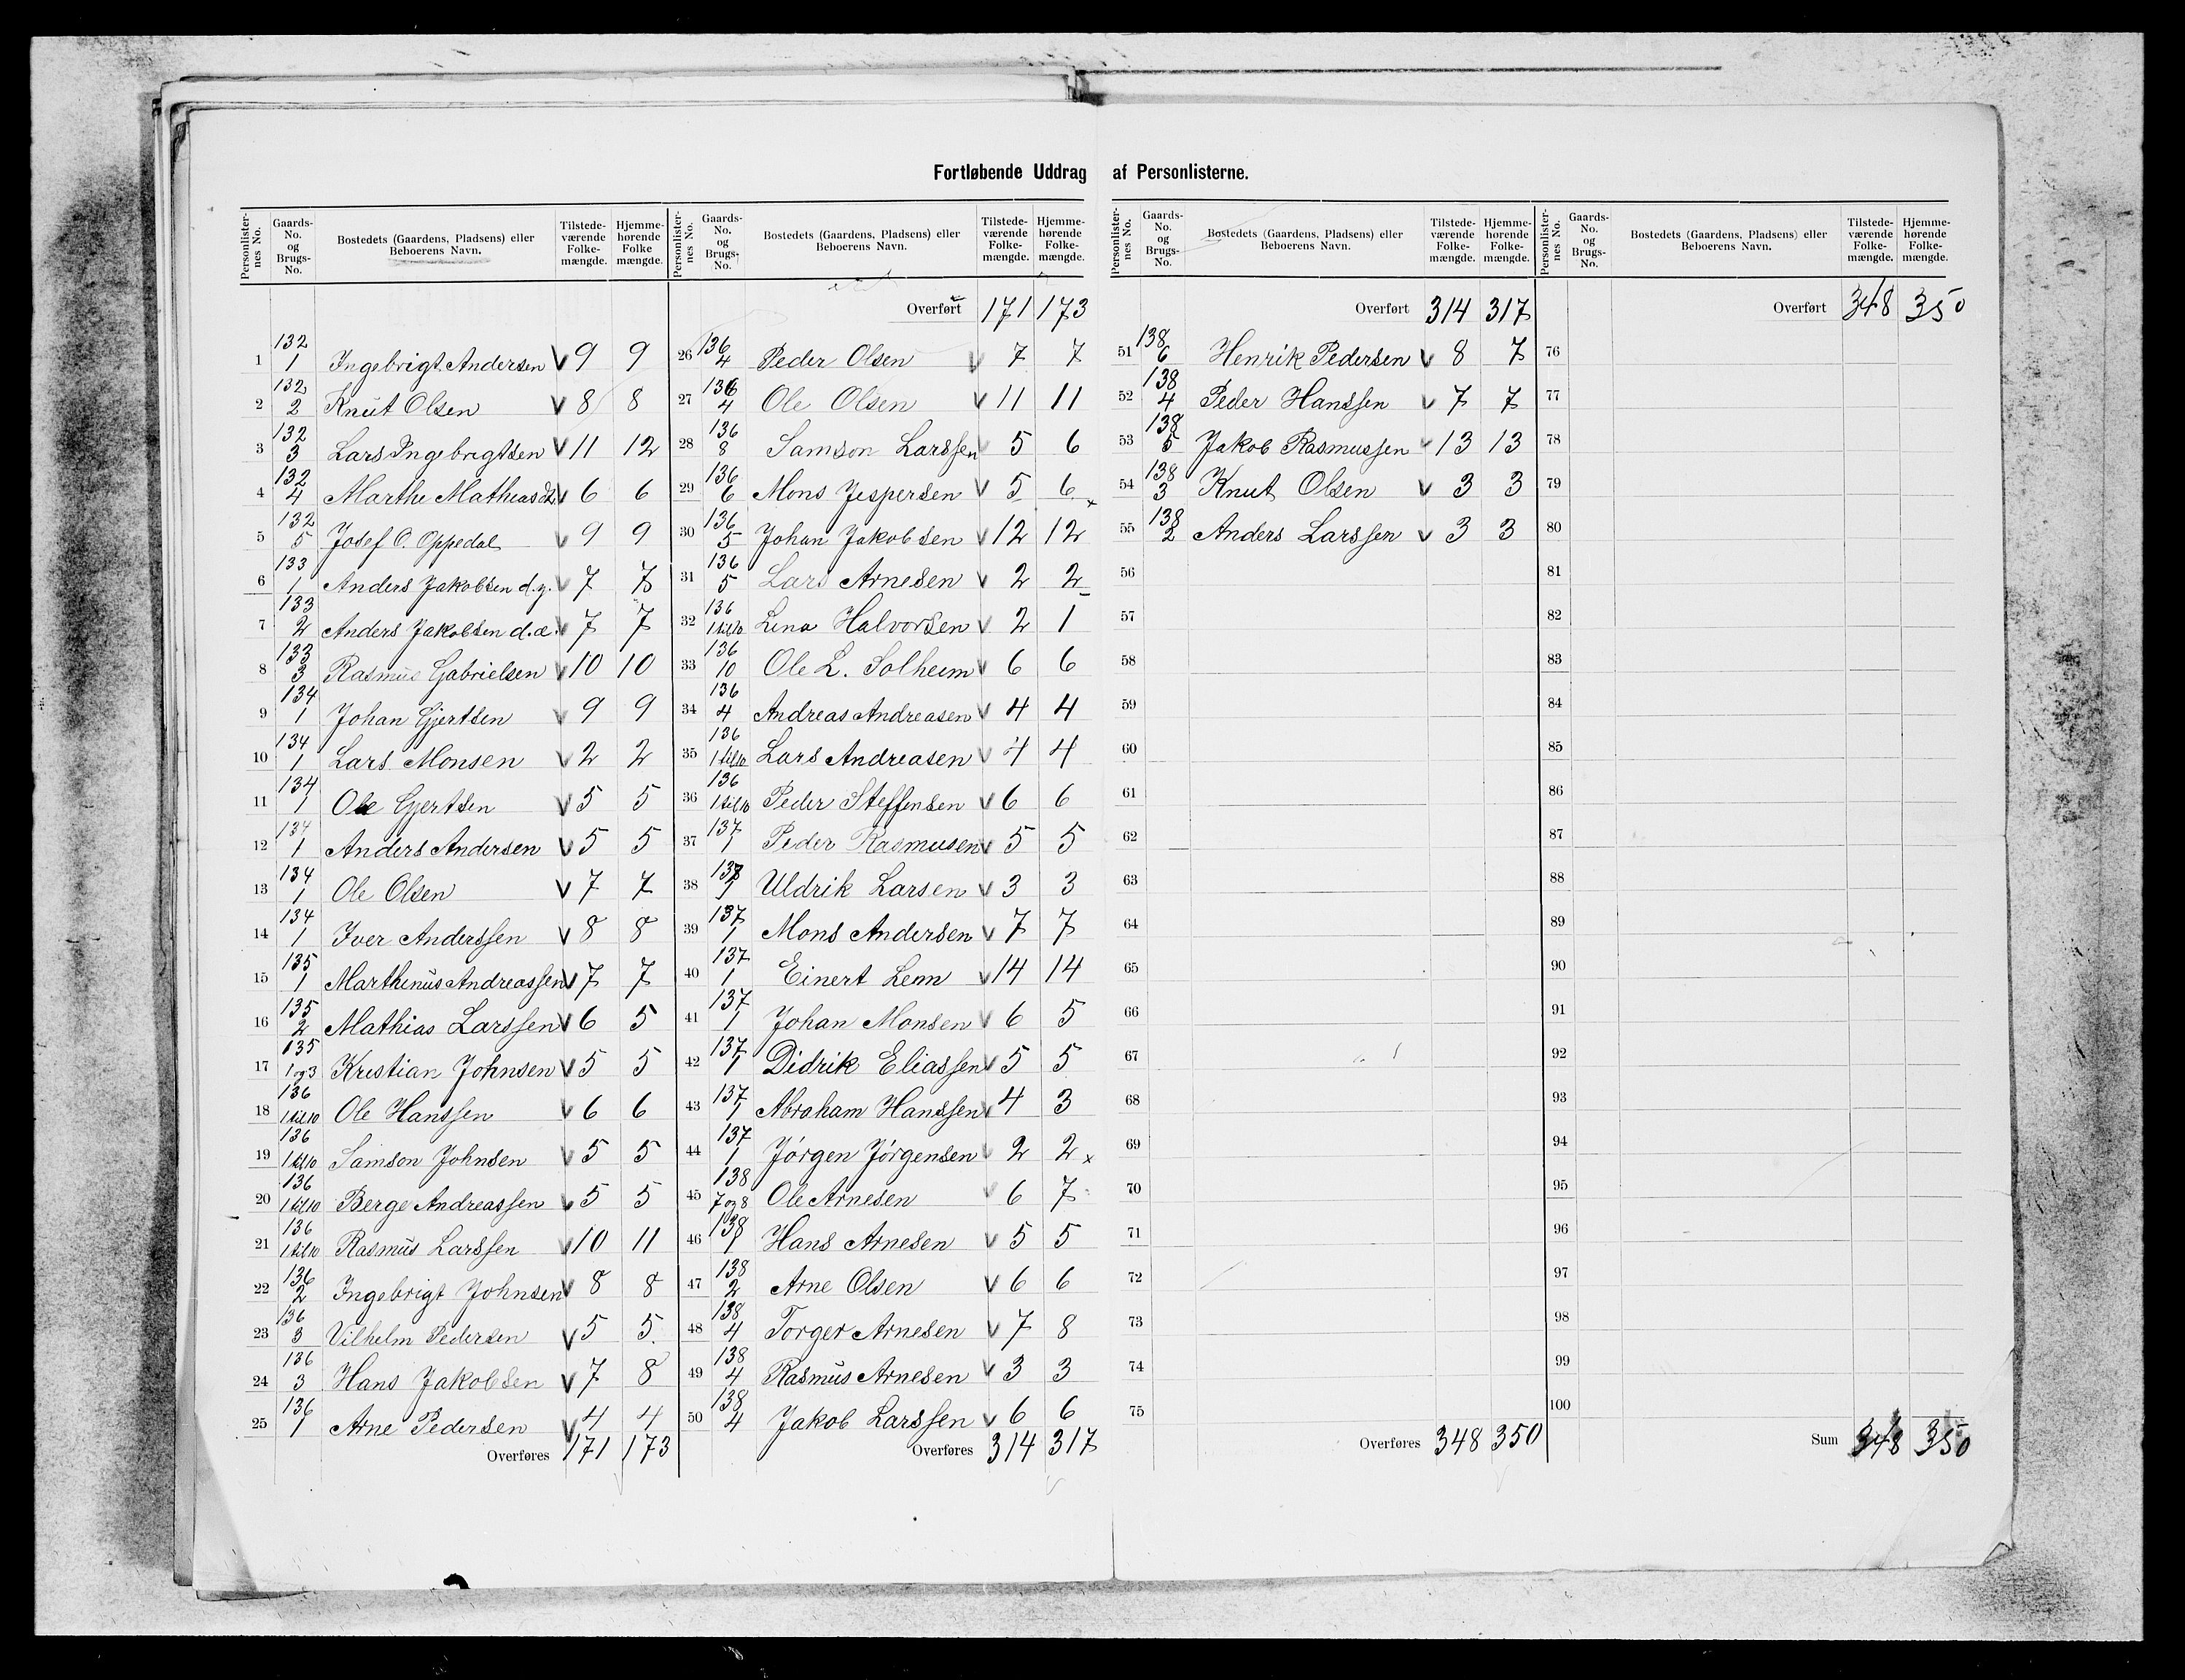 Fortløbende Uddrag af Personlisterne.
Personlister-nes No. Gaards-No. og Brugs-No. Bostedets (Gaardens, Pladsens) eller Beboerens Navn. Tilstede-værende Folke-mængde. Hjemme-hørende Folke mængde.
1 132/1 Ingebrigt Andersen V 9 9
2 132/2 Knut Olsen V 8 8
3 132/3 Lars Ingebrigtsen V 11 12
4 132/4 Marthe Mathiasd. V 6 6
5 132/5 Josef O. Oppedal V 9 9
6 133/1 Anders Jakobsen d.y. V 7 7
7 133/2 Anders Jakobsen d.æ. V 7 7
8 133/3 Rasmus Gabrielsen V 10 10
9 134/1 Johan Gjertsen V 9 9
10 134/1 Lars Monsen V 2 2
11 134/1 Ole Gjertsen V 5 5
12 134/1 Anders Andersen V 5 5
13 134/1 Ole Olsen V 7 7
14 134/1 Iver Anderssen V 8 8
15 135/1 Marthinus Andreassen V 7 7
16 135/2 Mathias Larssen V 6 5
17 135/1 og 3 Kristian Johnsen V 5 5
18 136/1 til 10 Ole Hanssen V 6 6
19 136/1 til 10 Samson Johnsen V 5 5
20 136/1 til 10 Berge Andreassen V 5 5
21 136/1 til 10 Rasmus Larssen V 10 11
22 136/2 Ingebrigt Johnsen V 8 8
23 136/3 Vilhelm Pedersen V 5 5
24 136/3 Hans Jakobsen V 7 8
25 136/1 Arne Pedersen V 4 4
Overføres 171 173
Personlister-nes No. Gaards-No. og Brugs-No. Bostedets (Gaardens, Pladsens) eller Beboerens Navn. Tilstede-værende Folke-mængde. Hjemme-hørende Folke-mængde.
Overført 171 173
26 136/4 Peder Olsen V 7 7
27 136/4 Ole Olsen V 11 11
28 136/8 Samson Larssen V 5 6
29 136/6 Mons Jespersen V 5 6 x
30 136/5 Johan Jakobsen V 12 12
31 136/5 Lars Arnesen V 2 2
32 136/1 til 10 Lina Halvorsen V 2 1
33 136/10 Ole L. Solheim V 6 6
34 136/4 Andreas Andreasen V 4 4
35 136/1 til 10 Lars Andreasen V 4 4
36 136/1 til 10 Peder Steffensen V 6 6
37 137/1 Peder Rasmusen V 5 5
38 137/1 Uldrik Larsen V 3 3
39 137/1 Mons Andersen V 7 7
40 137/1 Einert Lem V 14 14
41 137/1 Johan Monsen V 6 5
42 137/1 Didrik Eliassen V 5 5
43 137/1 Abraham Hanssen V 4 3
44 137/1 Jörgen Jörgensen V 2 2 x
45 138/7 og 8 Ole Arnesen V 6 7
46 138/1 Hans Arnesen V 5 5
47 138/2 Arne Olsen V 6 6
48 138/4 Torger Arnesen V 7 8
49 138/4 Rasmus Arnesen V 3 3
50 138/4 Jakob Larssen V 6 6
Overføres 314 317
Personlister-nes No. Gaards-No. og Brugs-No. Bostedets (Gaardens, Pladsens) eller Beboerens Navn. Tilstede-værende Folke-mængde. Hjemme-hørende Folke-mængde.
Overført 314 317
51 138/6 Henrik Pedersen V 8 7
52 138/4 Peder Hanssen V 7 7
53 138/5 Jakob Rasmussen V 13 13
54 138/3 Knut Olsen V 3 3
55 138/2 Anders Larssen V 3 3
56
57
58
59
60
61
62
63
64
65
66
67
68
69
70
71
72
73
74
75
Overføres 348 350
Personlister-nes No. Gaards-No. og Brugs-No. Bostedets (Gaardens, Pladsens) eller Beboerens Navn. Tilstede-værende Folke-mængde. Hjemme-hørende Folke-mængde.
Overført 348 350
76
77
78
79
80
81
82
83
84
85
86
87
88
89
90
91
92
93
94
95
96
97
98
99
100
Sum 348 350